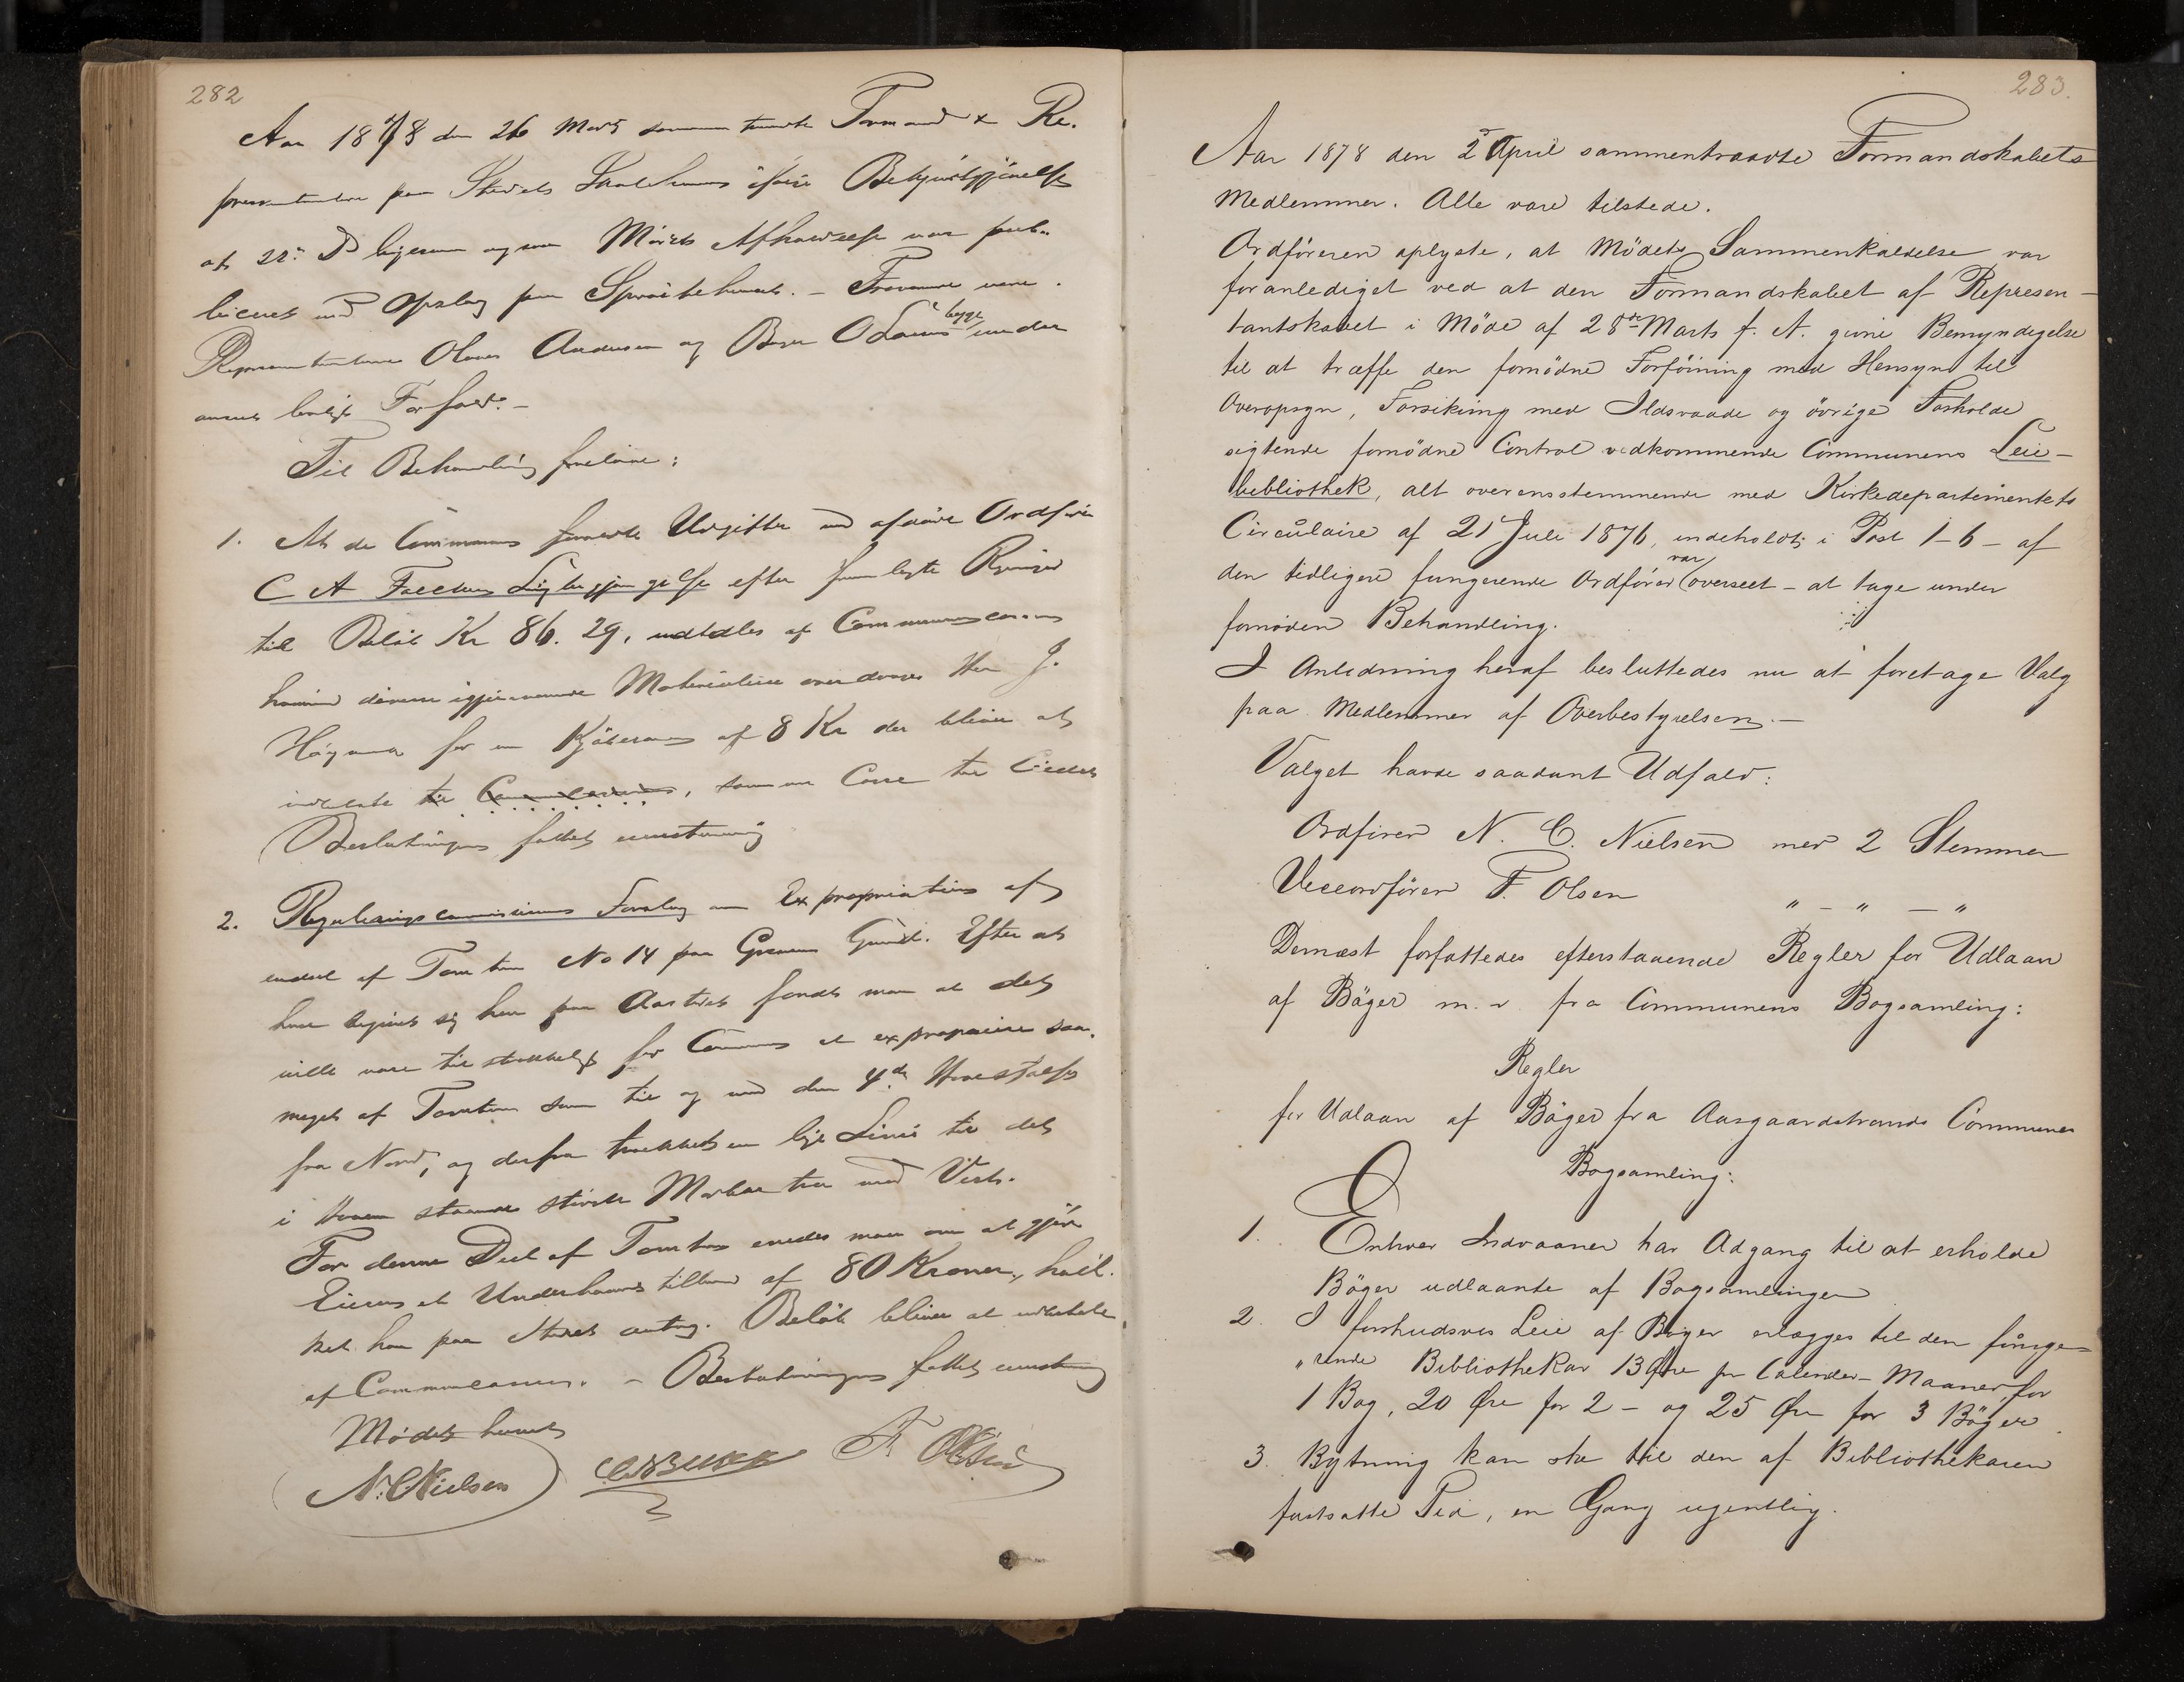 282
Aar 1878 den 26 Marts sammentraadte Formand & Re-
præsentanter paa Stedets ifølge Bekjendtgjørelse
af 22. D ligesom ogsaa Mødets Afholdelse var pub-
liceret ved Opslag paa Sprøitehuset. – Fraværende vare
Repræsentanterne Olaus Andersen og begge under
anmeldt lovligt Forfald. –
Til Behandling forelaae:
1. At de Communen Udgifter ved afdøde Ordfører
C A efter fremlagte Regninger
til Beløb Kr 86. 29, udtales af Communecassen
hvorimod diverse igjenværende Materialier overdrages Herr J.
for en Kjøbesum af 8 Kr der bliver at
indbetale til , samme Casse
Beslutningen fattet eenstemmig
2. Reguleringscommissionens Forslag om Expropriation af
endeel af Tomten No 14 paa Grevens Grund. Efter at
have begivet sig hen paa Aastedet fandt man at det
ville være tilstrækkeligt for Communen at expropriere saa
meget af Tomten som til og med den 4de
fra Nord, og derfra trukket en lige Linie til det
i Haven staaende største træ mod Vest.
For denne Deel af Tomten enedes man om at gjøre
Eieren et Underhaands tilbud af 80 Kroner, hvil-
ket han paa Stedet antog. Beløb bliver at udbetale
af Communecassen. – Beslutningen fattet eenstemmig
Mødet hævet
N. C. Nielsen F. Olsen
283.
Aar 1878 den 2 April sammentraadte Formandskabets
Medlemmer. Alle vare tilstede.
Ordføreren oplyste, at Mødets Sammenkaldelse var
foranlediget ved at den Formandskabet af Represen-
tantskabet i Møde af 28de Marts f. A. givne Bemyndigelse
til at træffe den fornødne Forføining med Hensyn til
Overopsyn, Forsikring med Ildsvaade og øvrige Forholde
sigtende fornødne Control vedkommende Communens Leie-
bibliothek, alt overensstemmende med Kirkedepartementets
Circulaire af 21 Juli 1876, indeholdt i Post 1-6 – af
den tidligere fungerende Ordfører var overseet – at tage under
fornøden Behandling.
I Anledning heraf besluttedes nu at foretage Valg
paa Medlemmer af Overbestyrelsen. –
Valget havde saadant Udfald:
Ordfører N. C. Nielsen med 2 Stemmer
Viceordfører F. Olsen " – " – "
Dernæst forfattedes efterstaaende Regler for Udlaan
af Bøger m. v. fra Communens Bogsamling:
Regler
for Udlaan af Bøger fra Aasgaardstrands Communes
Bogsamling:
1. Enhver Indvaaner har Adgang til at erholde
Bøger udlaante af Bogsamlingen
2. I forskudsvis Leie af Bøger erlægges til den funge-
"rende Bibliothekar 13 Øre pr Calender-Maaned for
1 Bog, 20 Øre for 2 – og 25 Øre for 3 Bøger.
3. Bytning kan ske til den af Bibliothekaren
fastsatte Tid, en Gang ugentlig.